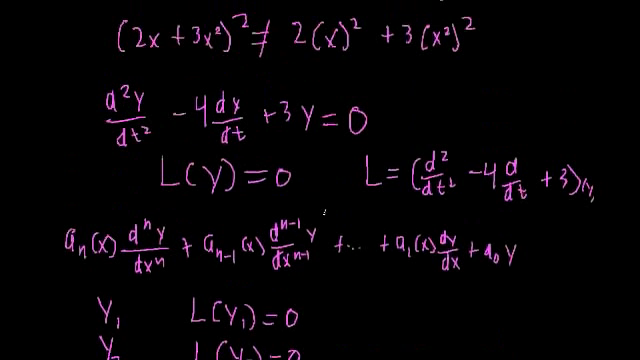 (2x + 3x²)² ≠ 2(x)² + 3(x²)²
d²y/dt² - 4 dy/dt + 3y = 0
L(y) = 0 L = (d²/dt² - 4 d/dt + 3)
aₙ(x) dⁿy/dxⁿ + aₙ₋₁(x) dⁿ⁻¹y/dxⁿ⁻¹ + ... + a₁(x) dy/dx + a₀ y
y₁ L(y₁) = 0
y₂ L(y₂) = 0